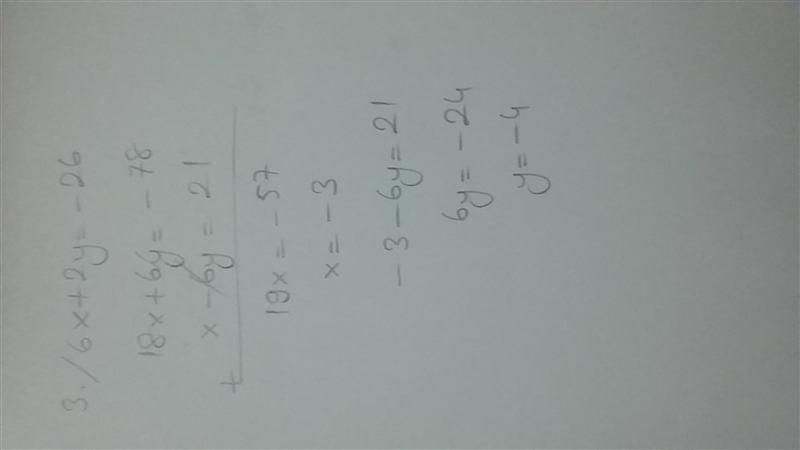 3./6x+2y=-26
18x+6y=-78
x-6y=21
+
19x=-57
x=-3
-3-6y=21
6y=-24
y=-4